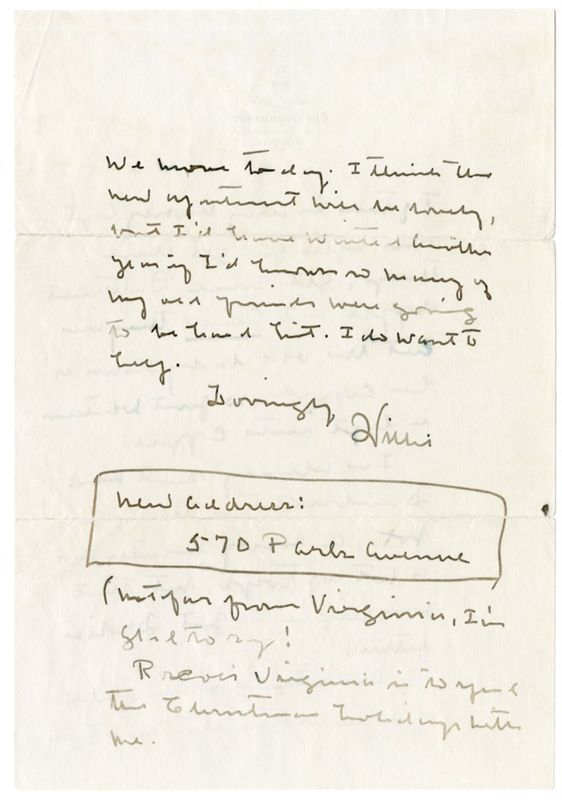 We move to day. I think the
new apartment will be lovely,
but I'd have waited another
year if I'd known so many of
my old friends were going
to be hard hit. I do want to
help.
Lovingly,
Willie
New address:
570 Park Avenue
(not far from Virginia, I'm
glad to say!
Virginia is to spend
the Christmas holidays with
me.